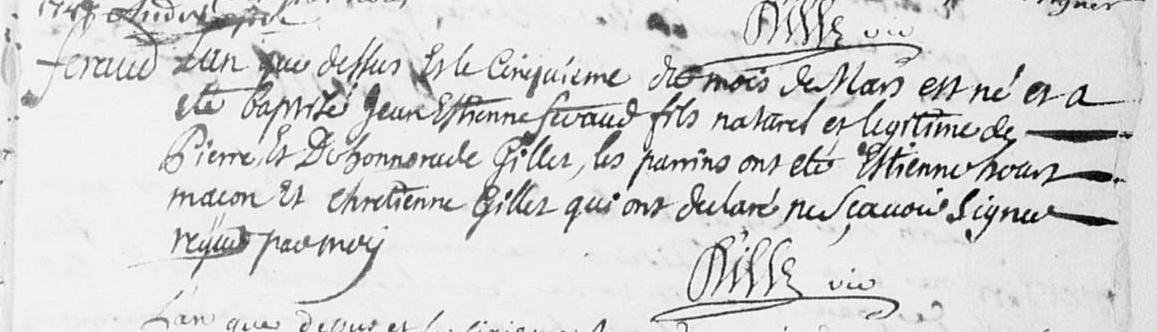 signer
Rille vic
feraud L'an que dessus Et le Cinquieme du mois de Mars est né et a
eté baptisé Jean Estienne feraud fils naturel et legitime de
Pierre, Et De honnorade Gillet, les parrins ont eté Estienne
maçon Et chretienne Gillet qui ont declaré ne sçavoir signer
requis par moy
Rille vic
L'an que dessus et le